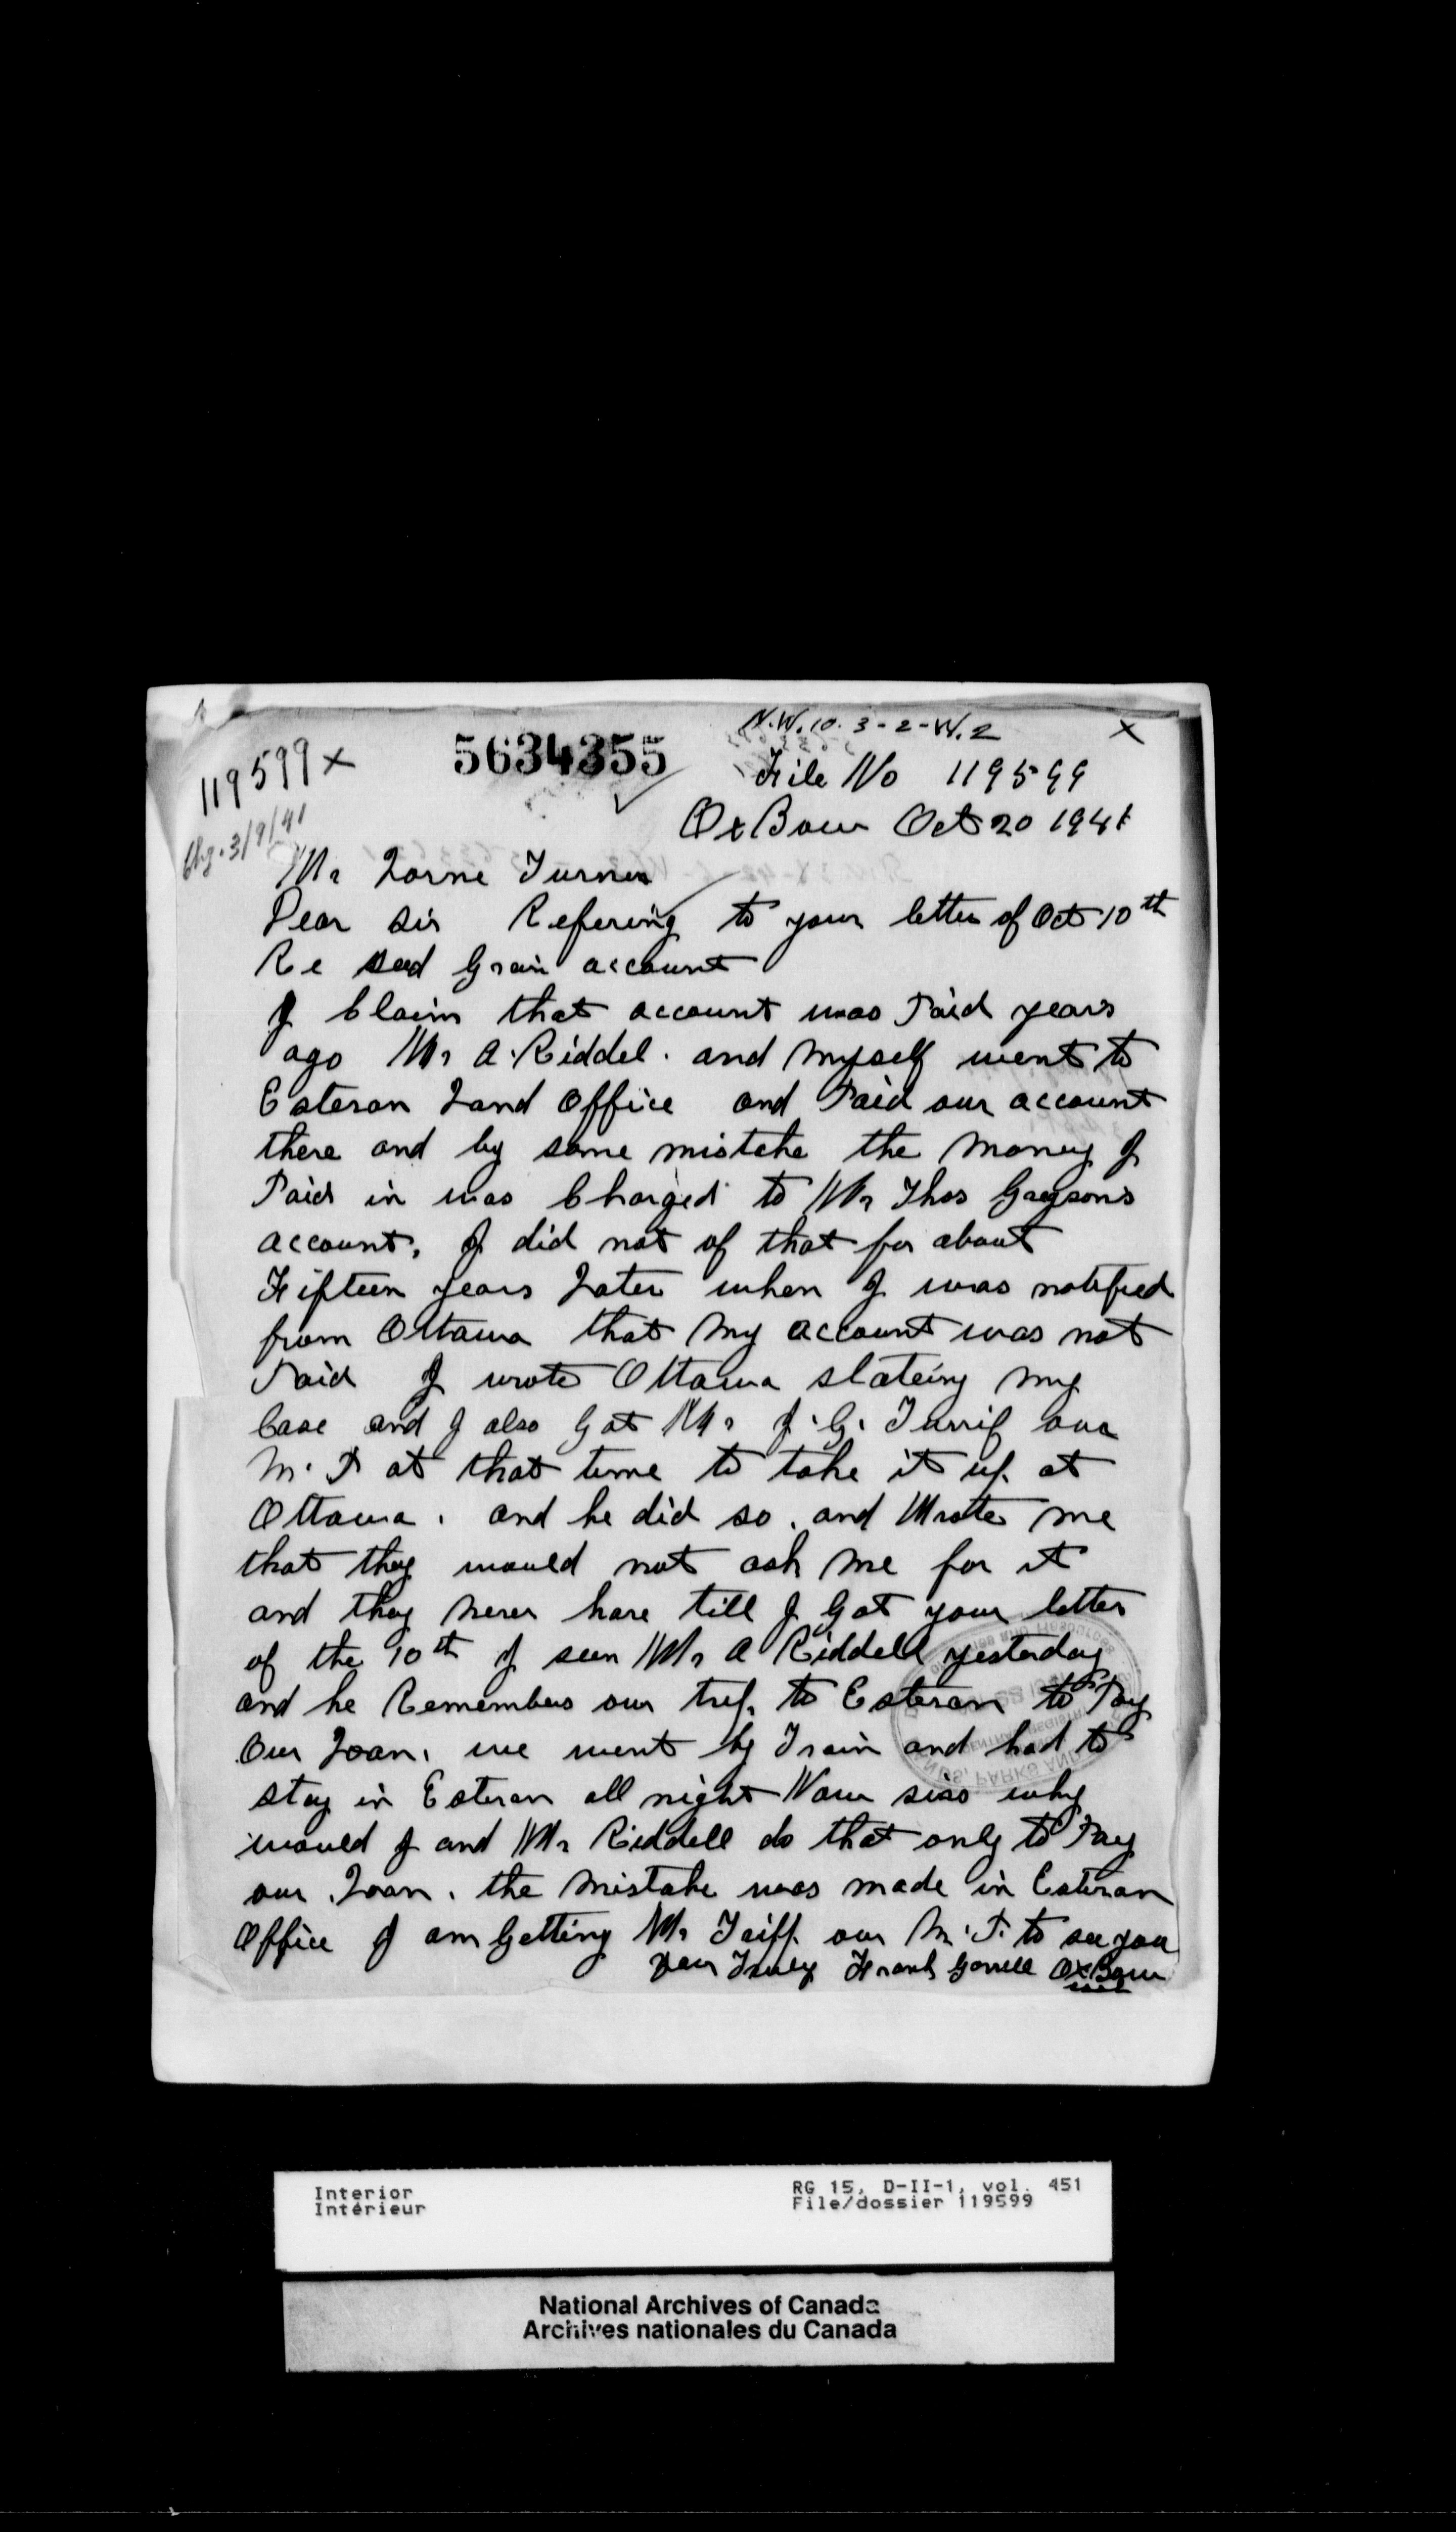 N.W. 10. 3-2-W.2
x
119599 x
5634355
File No 119599
Chg. 3/9/41
OxBow Oct 20 1941
Mr Lorne Turner
Dear Sir Refering to your letter of Oct 10th
Re seed Grain account
I Claim that account was Paid years
ago Mr A. Riddel. and myself went to
Estevan Land Office and Paid our account
there and by some mistake the money I
Paid in was Charged to Mr Thos Graysons
account, I did not of that for about
Fifteen years Later when I was notified
from Ottawa that my account was not
Paid I wrote Ottawa stateing my
Case and I also Got Mr J. G. Turrif our
M. P at that time to take it up. at
Ottawa. and he did so. and Wrote me
that they would not ask me for it
and they never have till I Got your letter
of the 10th I seen Mr A Riddell yesterday
and he Remembers our trip. to Estevan to Pay
Our Loan, we went by Train and had to
stay in Estevan all night Now sirs why
would I and Mr Riddell do that only to Pay
our Loan. the mistake was made in Estevan
Office I am Getting Mr Tripp. our M. P. to see you
Your Truly Frank Gorrell OxBow
Interior
Intérieur
RG 15, D-II-1, vol. 451
File/dossier 119599
National Archives of Canada
Archives nationales du Canada